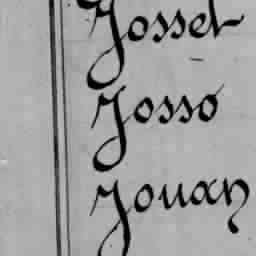 Josset
Josso
Jouan